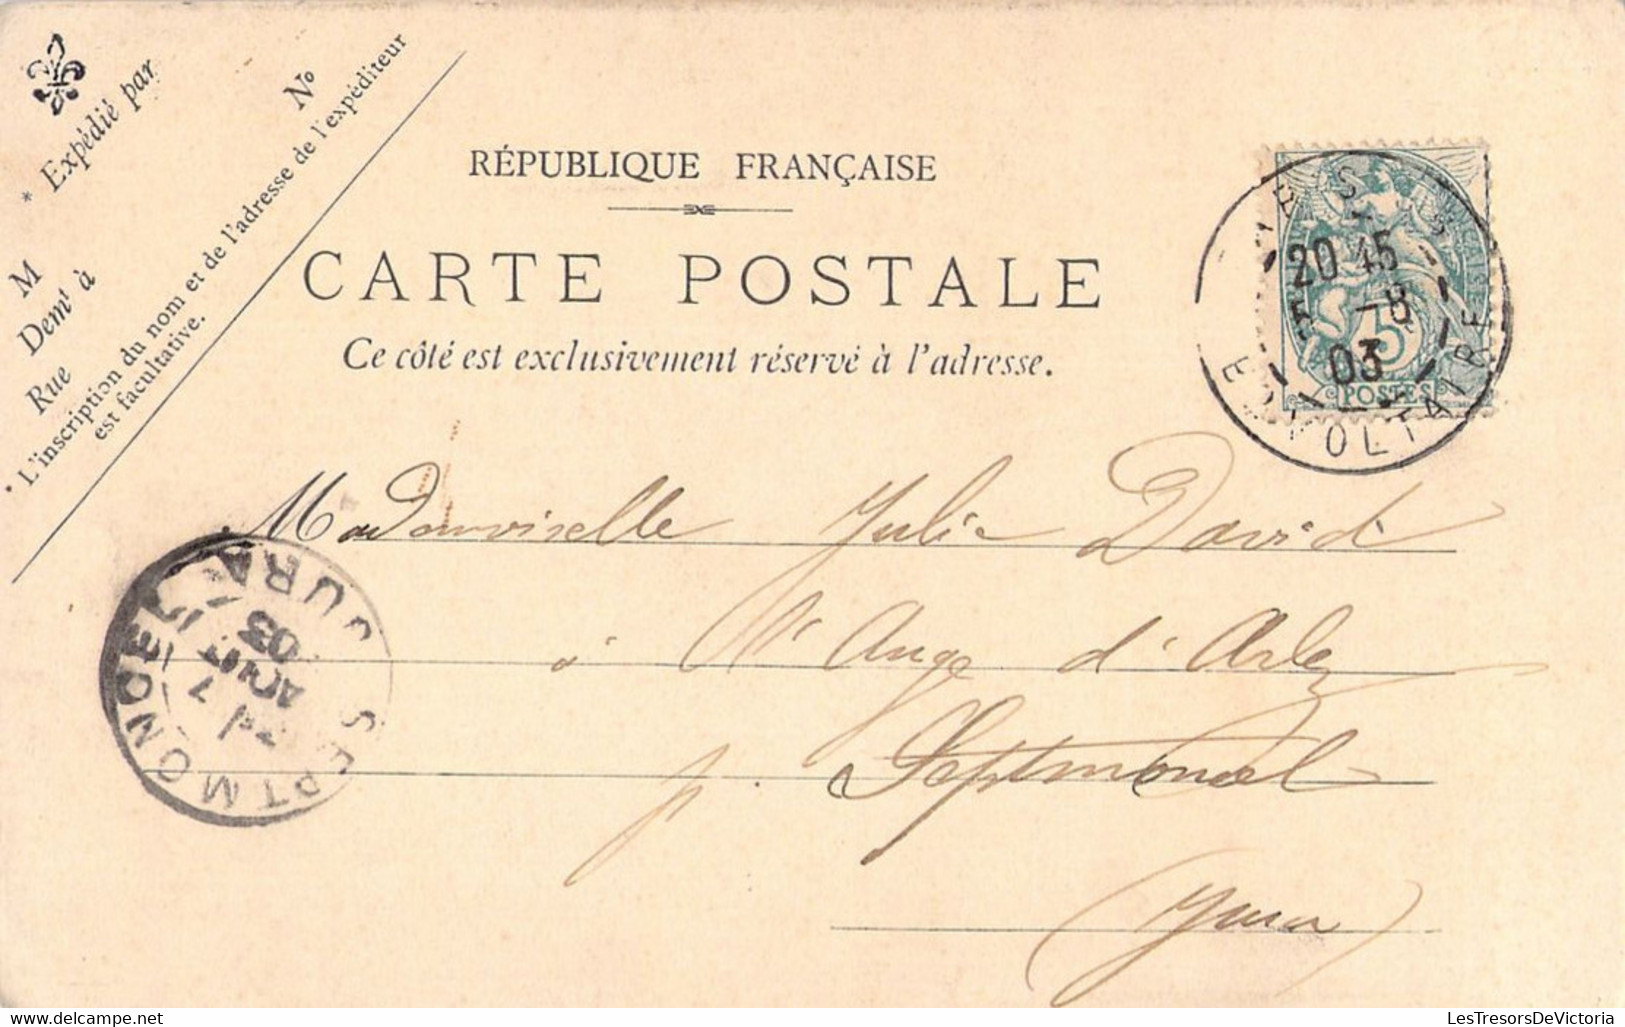 * Expédié par
M
Demt à
Rue
No
* L'inscription du nom et de l'adresse de l'expéditeur
est facultative.
RÉPUBLIQUE FRANÇAISE
CARTE POSTALE
Ce côté est exclusivement réservé à l'adresse.
20 45
-8
03
VOLTAIRE
5
POSTES
Mademoiselle Julie David
à St Ange d'
p. Septmoncel
(Jura)
SEPTMONCEL
JURA
7
AOUT
03
LesTresorsDeVictoria